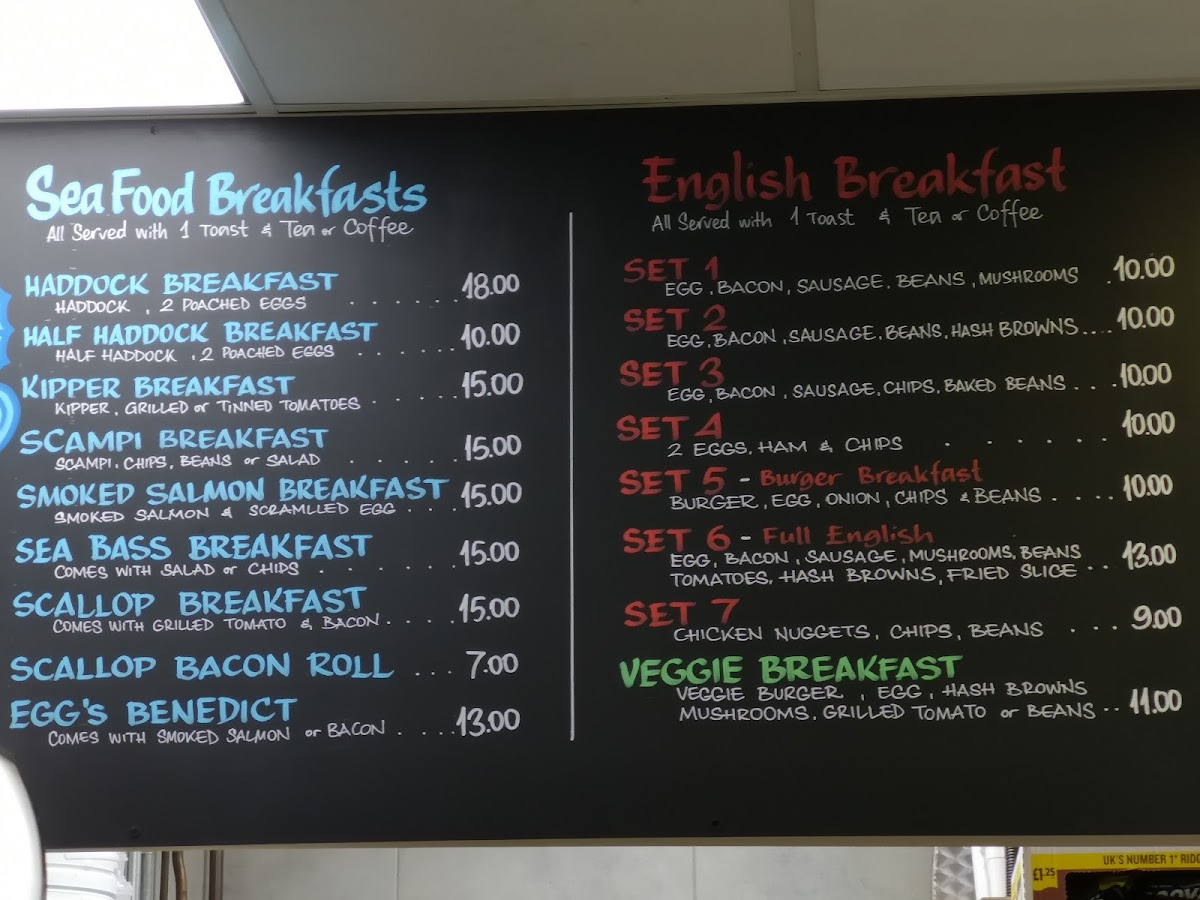 Sea Food Breakfasts
All Served with 1 Toast & Tea or Coffee
HADDOCK BREAKFAST
HADDOCK, 2 POACHED EGGS . . . . . . 18.00
HALF HADDOCK BREAKFAST
HALF HADDOCK, 2 POACHED EGGS . . . . . 10.00
KIPPER BREAKFAST
KIPPER, GRILLED or TINNED TOMATOES . . . . 15.00
SCAMPI BREAKFAST
SCAMPI, CHIPS, BEANS or SALAD . . . . . 15.00
SMOKED SALMON BREAKFAST
SMOKED SALMON & SCRAMLLED EGG . . . 15.00
SEA BASS BREAKFAST
COMES WITH SALAD or CHIPS . . . . . . 15.00
SCALLOP BREAKFAST
COMES WITH GRILLED TOMATO & BACON . . . . 15.00
SCALLOP BACON ROLL . . . . 7.00
EGG'S BENEDICT
COMES WITH SMOKED SALMON or BACON . . . . 13.00
English Breakfast
All Served with 1 Toast & Tea or Coffee
SET 1
EGG, BACON, SAUSAGE, BEANS, MUSHROOMS . 10.00
SET 2
EGG, BACON, SAUSAGE, BEANS, HASH BROWNS .... 10.00
SET 3
EGG, BACON, SAUSAGE, CHIPS, BAKED BEANS . . . 10.00
SET 4
2 EGGS, HAM & CHIPS . . . . . . 10.00
SET 5 - Burger Breakfast
BURGER, EGG, ONION, CHIPS & BEANS . . . . 10.00
SET 6 - Full English
EGG, BACON, SAUSAGE, MUSHROOMS, BEANS
TOMATOES, HASH BROWNS, FRIED SLICE . . 13.00
SET 7
CHICKEN NUGGETS, CHIPS, BEANS . . . 9.00
VEGGIE BREAKFAST
VEGGIE BURGER, EGG, HASH BROWNS
MUSHROOMS, GRILLED TOMATO or BEANS . . 11.00
UK'S NUMBER 1*
£1.25